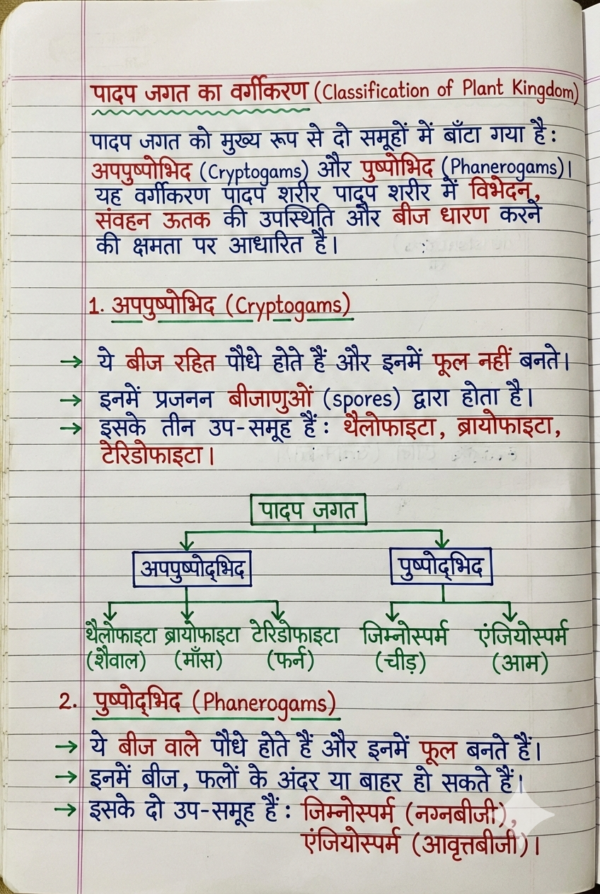 पादप जगत का वर्गीकरण (Classification of Plant Kingdom)
पादप जगत को मुख्य रूप से दो समूहों में बाँटा गया है:
अपपुष्पोभिद (Cryptogams) और पुष्पोभिद (Phanerogams)।
यह वर्गीकरण पादप शरीर पादप शरीर में विभेदन,
संवहन ऊतक की उपस्थिति और बीज धारण करने
की क्षमता पर आधारित है।
1. अपपुष्पोभिद (Cryptogams)
→ ये बीज रहित पौधे होते हैं और इनमें फूल नहीं बनते।
→ इनमें प्रजनन बीजाणुओं (spores) द्वारा होता है।
→ इसके तीन उप-समूह हैं: थैलोफाइटा, ब्रायोफाइटा,
टेरिडोफाइटा।
पादप जगत
अपपुष्पोद्भिद पुष्पोद्भिद
थैलोफाइटा ब्रायोफाइटा टेरिडोफाइटा जिम्नोस्पर्म एंजियोस्पर्म
(शैवाल) (माँस) (फर्न) (चीड़) (आम)
2. पुष्पोद्भिद (Phanerogams)
→ ये बीज वाले पौधे होते हैं और इनमें फूल बनते हैं।
→ इनमें बीज, फलों के अंदर या बाहर हो सकते हैं।
→ इसके दो उप-समूह हैं: जिम्नोस्पर्म (नग्नबीजी),
एंजियोस्पर्म (आवृत्तबीजी)।